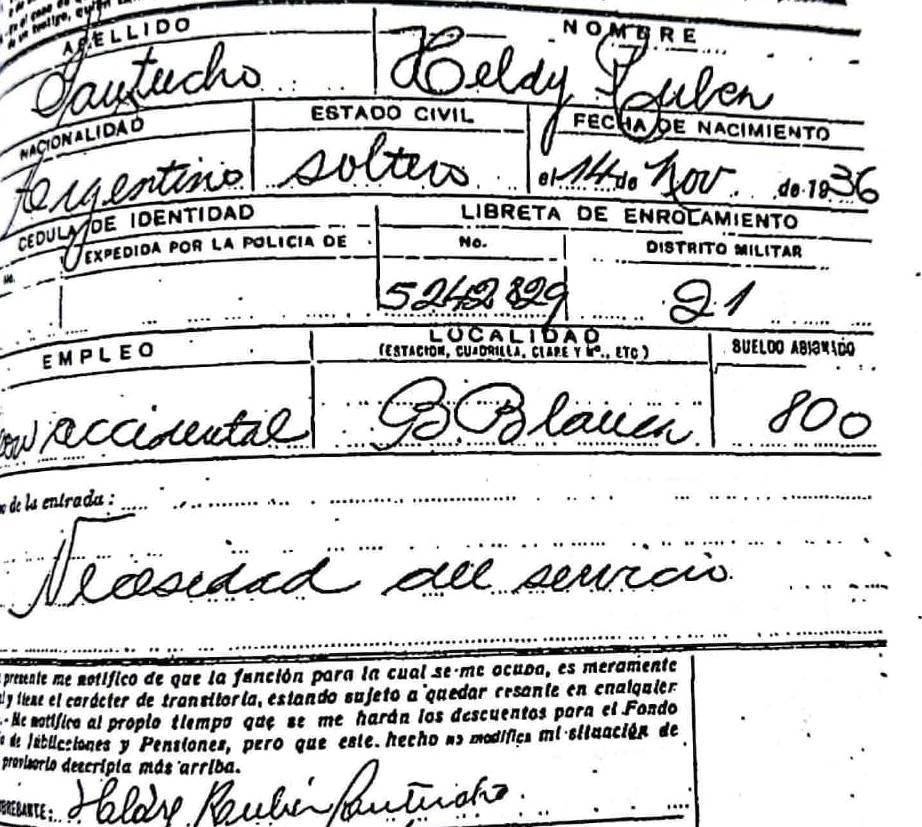 de un testigo, quien
APELLIDO NOMBRE
Santucho Heldy Ruben
NACIONALIDAD ESTADO CIVIL FECHA DE NACIMIENTO
Argentino soltero el 14 de Nov de 1936
CEDULA DE IDENTIDAD LIBRETA DE ENROLAMIENTO
No. EXPEDIDA POR LA POLICIA DE No. DISTRITO MILITAR
5242829 21
EMPLEO LOCALIDAD SUELDO ASIGNADO
(ESTACION, CUADRILLA, CLASE Y Nº., ETC)
accidental B Blanca 800
de la entrada:
Necesidad del servicio
presente me notifico de que la función para la cual se me ocupa, es meramente
y tiene el carácter de transitoria, estando sujeto a quedar cesante en cualquier
- Me notifico al propio tiempo que se me harán los descuentos para el Fondo
de Jubilaciones y Pensiones, pero que este hecho no modifica mi situación de
provisorio descripta más arriba.
Heldy Rubén Santucho